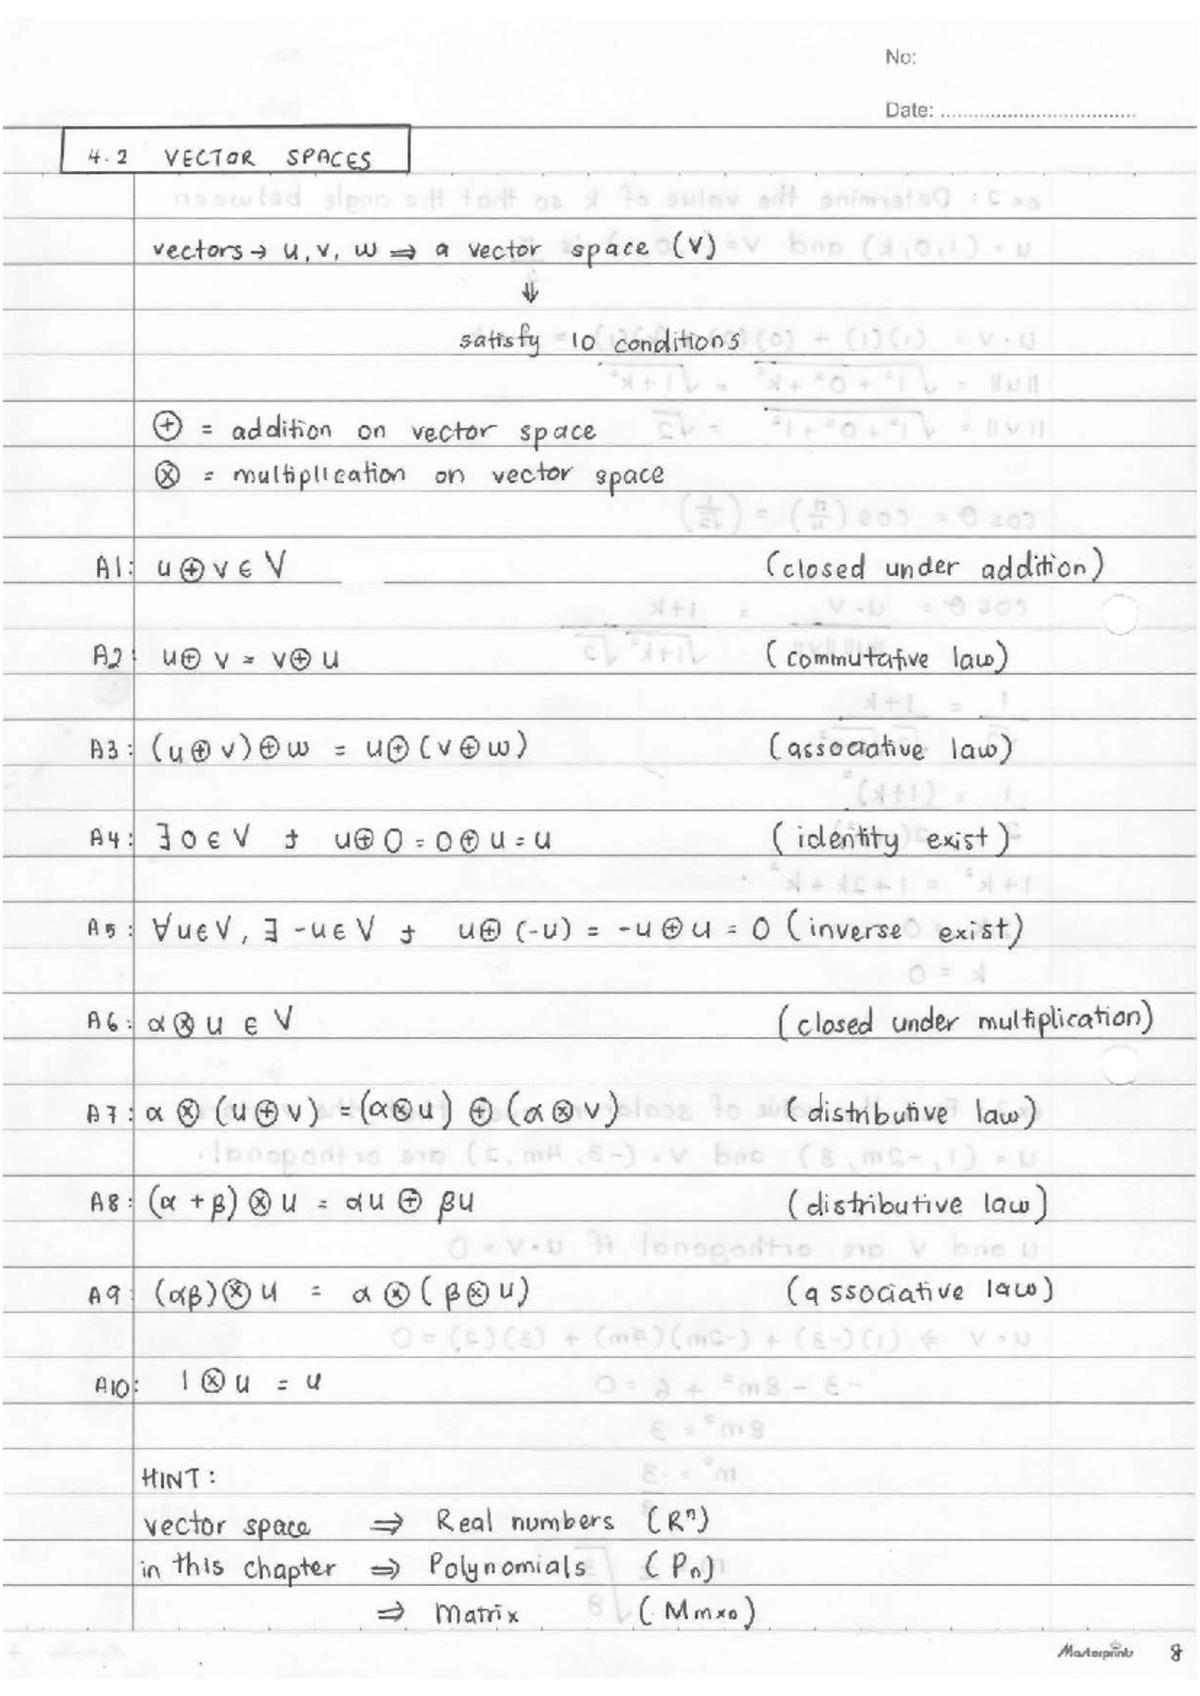 No:
Date: ..................................
4.2 VECTOR SPACES
vectors → u, v, w ⇒ a vector space (V)
⇓
satisfy 10 conditions
⊕ = addition on vector space
⊗ = multiplication on vector space
A1: u ⊕ v ∈ V (closed under addition)
A2: u ⊕ v = v ⊕ u (commutative law)
A3: (u ⊕ v) ⊕ w = u ⊕ (v ⊕ w) (associative law)
A4: ∃ 0 ∈ V ∋ u ⊕ 0 = 0 ⊕ u = u (identity exist)
A5: ∀u ∈ V, ∃ -u ∈ V ∋ u ⊕ (-u) = -u ⊕ u = 0 (inverse exist)
A6: α ⊗ u ∈ V (closed under multiplication)
A7: α ⊗ (u ⊕ v) = (α ⊗ u) ⊕ (α ⊗ v) (distributive law)
A8: (α + β) ⊗ u = αu ⊕ βu (distributive law)
A9: (αβ) ⊗ u = α ⊗ (β ⊗ u) (associative law)
A10: 1 ⊗ u = u
HINT:
vector space ⇒ Real numbers (Rⁿ)
in this chapter ⇒ Polynomials (Pn)
⇒ Matrix (Mmxn)
Masterprint 8